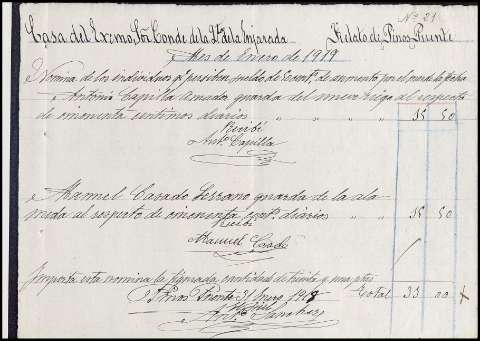 Nº 21
Casa del Exmo. Sor. Conde de la Pta. de la Injarada Fielato de Pinos Puente
Mes de Enero de 1919
Nomina de los individuos q. perciben sueldo de cent. de aumento por el mes de la fecha
Antonio Capilla Amador guarda del nuevo riego al respecto
de cincuenta centimos diarios " " " " 15 50
Recibí
Antº Capilla
Manuel Casado Serrano guarda de la ala
meda al respecto de cincuenta cent. diarios " " 15 50
Recibí
Manuel Casado
Importa esta nomina la figurada cantidad de treinta y una ptas
Total 33 00 x
Pinos Puente 31 Enero 191
Antº Sanchez